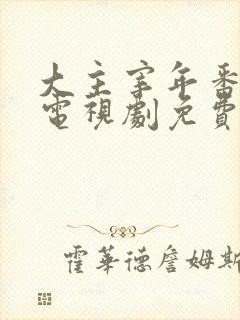 大主宰年番
電視劇免費
霍華德詹姆斯